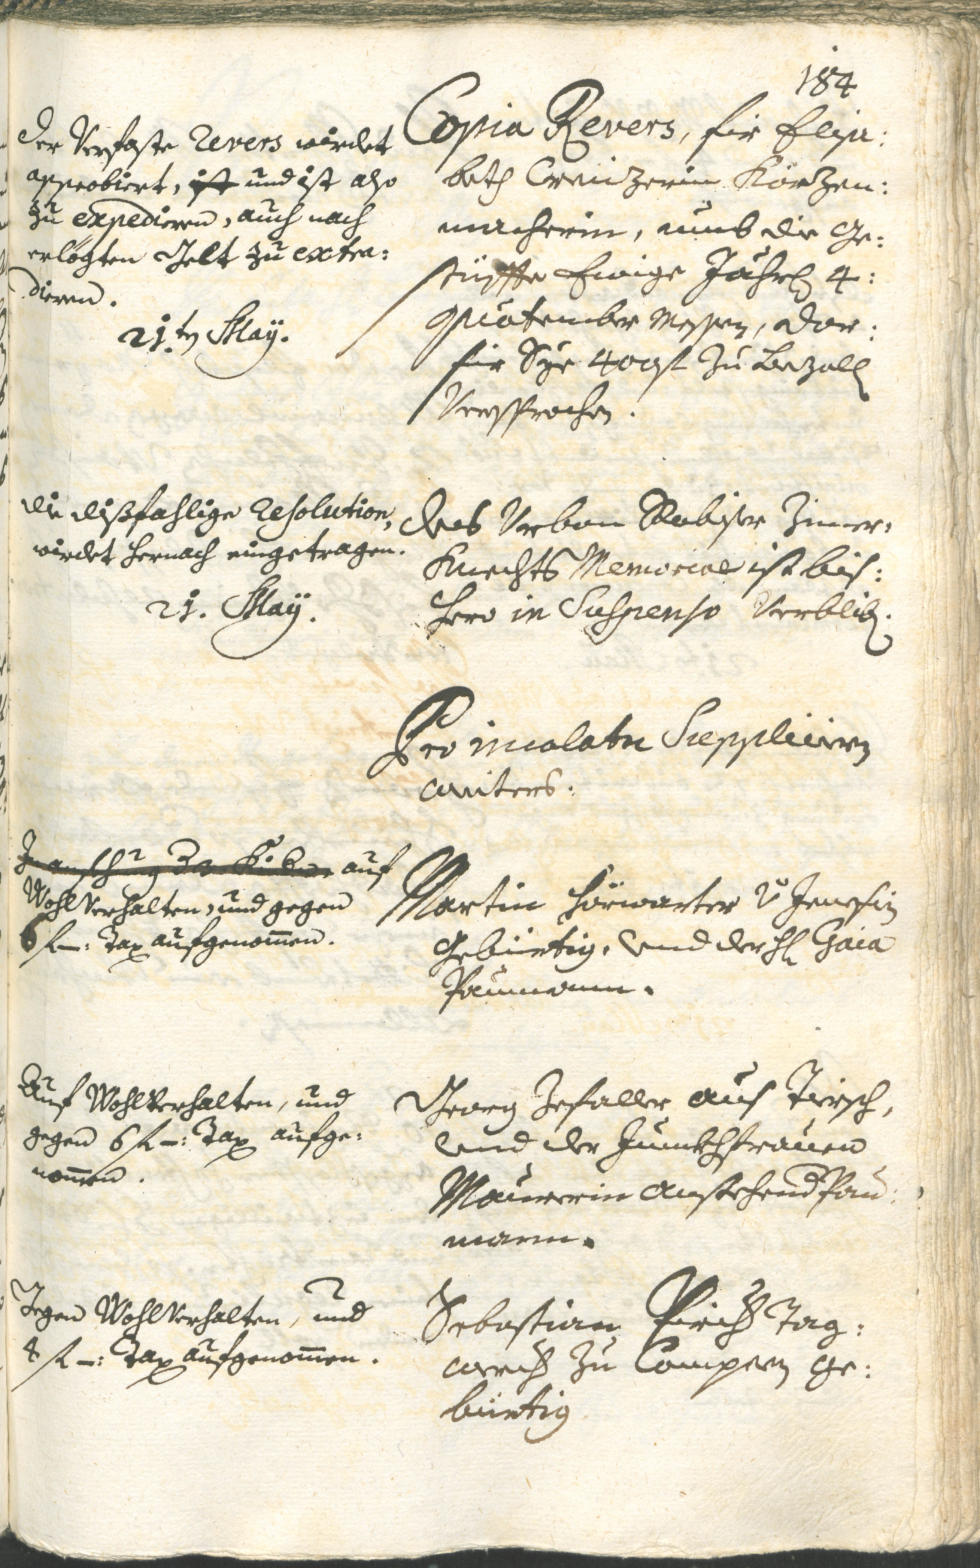 184
Der Verfaste Revers würdet
approbiert, ist und ist also
zu expedieren, auch nach
erlegten Gelt zu extra:
dieren.
21.ten May.
Copia Revers, für Elisa:
beth Creuzerin Körzen:
macherin, umb die Ge:
stüffte Ewige Jährl 4:
Quotember Messen, dar:
für Sye 400 fl zu bezalln
Versprochen.
die dißfahlige Resolution,
würdet hernach eingetragen.
21. May.
Des Urban Zimer:
Knechts Memorial ist bis:
hero in Suspenso Verbliben.
Pro incolatu Supplicieren
weiters.
auf
Wohlverhalten, und gegen
6 f –: Tax aufgenommen.
Martin Hörwarter v Jenesien
gebürtig, und der hl Gaia
Paumann.
Auf Wohlverhalten, und
gegen 6 f –: Tax aufge:
nommen.
Georg Gfaller aus Tirsch,
und der Junckhfrauen
Maurerin anstehend Pau:
mann.
Gegen Wohlverhalten, und
4 f –: Tax aufgenommen.
Sebastian Pirch Tag:
werch zu Campern ge:
bürtig